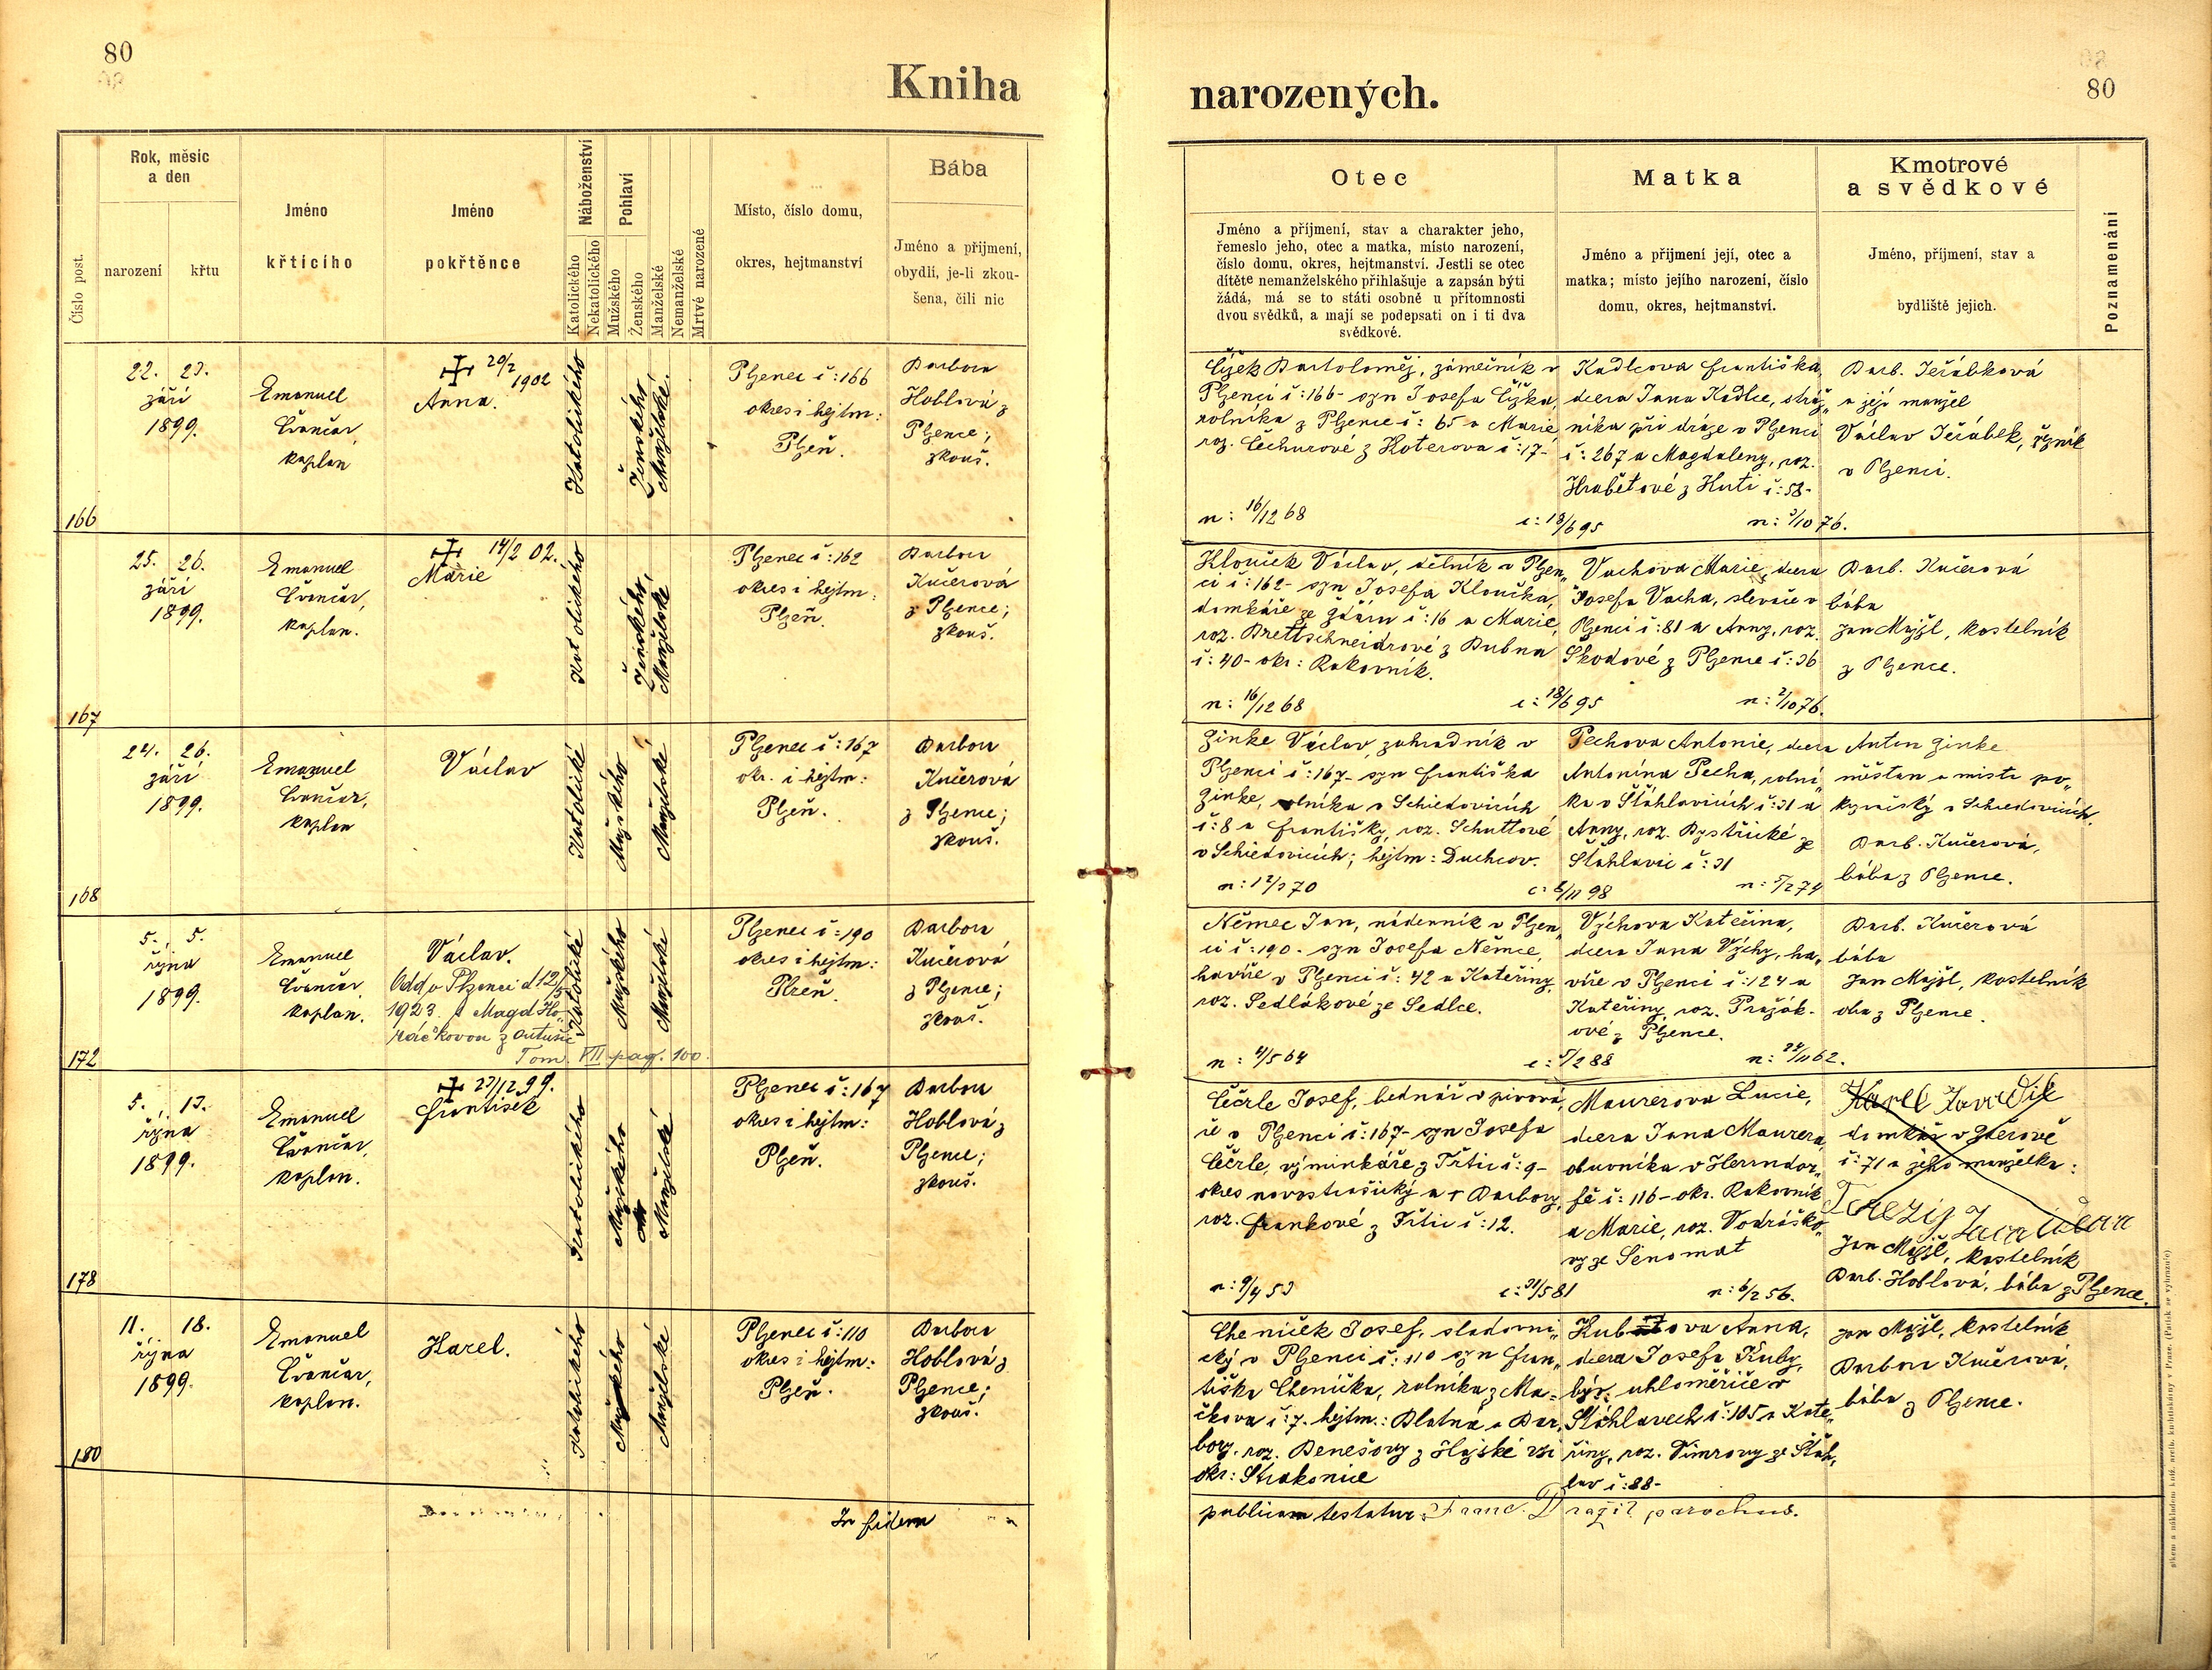 80
Kniha
Číslo post.
Rok, měsíc
a den
narození
křtu
Jméno
křtícího
Jméno
pokřtěnce
Náboženství
Katolického
Nekatolického
Pohlaví
Mužského
Ženského
Manželské
Nemanželské
Mrtvé narozené
Místo, číslo domu,
okres, hejtmanství
Bába
Jméno a přijmení,
obydlí, je-li zkou-
šena, čili nic
166
22. 23.
září
1899.
Emanuel
kaplan
20/2
1902
Anna.
Katolického
Ženského
Manželské.
Plzenec č: 166
okres i hejtm:
Plzeň.
Barbora
Hoblová z
Plzence;
zkouš.
167
25. 26.
září
1899.
Emanuel
kaplan.
14/2 02.
Marie
Katolického
Ženského
Manželské
Plzenec č: 162
okres i hejtm:
Plzeň.
Barbora
Kučerová
z Plzence;
zkouš.
168
24. 26.
září
1899.
Emanuel
kaplan
Václav
Katolické
Mužského
Manželské
Plzenec č: 167
okr. i hejtm:
Plzeň.
Barbora
Kučerová
z Plzence;
zkouš.
172
5. 5.
října
1899.
Emanuel
kaplan.
Václav.
Odd. v Plzenci d 12/5
1923. s Magd Ho-
ráčkovou z
Tom. VII pag. 100.
Katolické
Mužského
Manželské
Plzenec č: 190
okres i hejtm:
Plzeň.
Barbora
Kučerová
z Plzence;
zkouš.
178
5. 13.
října
1899.
Emanuel
kaplan.
23/12 99.
František
Katolického
Mužského
Manželské
Plzenec č: 167
okres i hejtm:
Plzeň.
Barbora
Hoblová z
Plzence;
zkouš.
180
11. 18.
října
1899.
Emanuel
kaplan.
Karel.
Katolického
Mužského
Manželské
Plzenec č: 110
okres i hejtm:
Plzeň.
Barbora
Hoblová z
Plzence;
zkouš.
In fidem
80
narozených.
Otec
Jméno a příjmení, stav a charakter jeho,
řemeslo jeho, otec a matka, místo narození,
číslo domu, okres, hejtmanství. Jestli se otec
dítěte nemanželského přihlašuje a zapsán býti
žádá, má se to státi osobně u přítomnosti
dvou svědků, a mají se podepsati on i ti dva
svědkové.
Matka
Jméno a přijmení její, otec a
matka; místo jejího narození, číslo
domu, okres, hejtmanství.
Kmotrové
a svědkové
Jméno, příjmení, stav a
bydliště jejich.
Poznamenání
Čížek Bartoloměj, zámečník v
Plzenci č: 166- syn Josefa Čížka,
rolníka z Plzence č: 65 a Marie
roz. Čechurové z Koterova č: 17-
n: 16/12 68
Kadlcova Františka,
dcera Jana Kadlce, stráž„
níka při dráze v Plzenci
č: 267 a Magdaleny, roz.
Hrabětové z Huti č: 58-
c: 18/6 95
n: 3/10 76.
Barb. Jeřábková
a její manžel
Václav Jeřábek, řezník
v Plzenci.
Klouček Václav, dělník v Plzen„
ci č: 162- syn Josefa Kloučka,
domkáře ze Ždáru č: 16 a Marie,
roz. Brettschneidrové z Dubna
č: 40- okr: Rakovník.
n: 16/12 68
Vachova Marie, dcera
Josefa Vacha, slevače v
Plzenci č: 81 a Anny, roz.
Škodové z Plzence č: 36
c: 18/6 95
n: 2/10 76.
Barb. Kučerová
bába
Jan Majzl, kostelník
z Plzence.
Zinke Václav, zahradník v
Plzenci č: 167- syn Františka
Zinke, rolníka v Schiedovicích
č: 8 a Františky, roz. Schuttové
v Schiedovicích; hejtm: Duchcov.
n: 12/3 70
Pechova Antonie, dcera
Antonína Pecha, rolní„
ka v Šťáhlavicích č: 31 a
Anny, roz. Bystřické ze
Šťáhlavic č: 31
c: 8/11 98
n: 5/2 74
Anton Zinke
měšťan a mistr po„
kryvačský v Schiedovicích.
Barb. Kučerová,
bába z Plzence.
Němec Jan, nádenník v Plzen„
ci č: 190- syn Josefa Němce,
havíře v Plzenci č: 42 a Kateřiny,
roz. Sedlákové ze Sedlce.
n: 4/5 64
Výchova Kateřina,
dcera Jana Výchy, ha„
víře v Plzenci č: 124 a
Kateřiny, roz. Pražák-
ové z Plzence.
c: 5/2 88
n: 24/11 62.
Barb. Kučerová
bába
Jan Majzl, kostelník
oba z Plzence.
Čečrle Josef, bednář v pivová„
ře v Plzenci č: 167- syn Josefa
Čečrle, výminkáře z Třtic č: 9-
okres novostrašický a + Barbory,
roz. Frankové z Třtic č: 12.
n: 9/4 53
Maurerova Lucie,
dcera Jana Maurera,
obuvníka v Herrndor„
fě č: 116- okr. Rakovník
a Marie, roz. Vodrážko„
vy ze Senomat
c: 31/5 81
n: 6/2 56.
Karel
domkář v
č: 71 a jeho manželka:
Jan Majzl, kostelník
Barb. Hoblová, bába z Plzence.
Cheníček Josef, sladovni„
cký v Plzenci č: 110 syn Fran„
tiška Cheníčka, rolníka z Ma-
čkova č: 7. hejtm.: Blatná a Bar„
bory, roz. Benešovy z Hajské vsi
okr: Strakonice
Kubova Anna,
dcera Josefa Kuby,
býv. uhloměřiče v
Šťáhlavech č: 105 a Kate„
řiny, roz. Vimrovy ze Šťáh„
lav č: 88-
Jan Majzl, kostelník
Barbora Kučerová,
bába z Plzence.
publicam testatur: Franc. Dražil parochus.